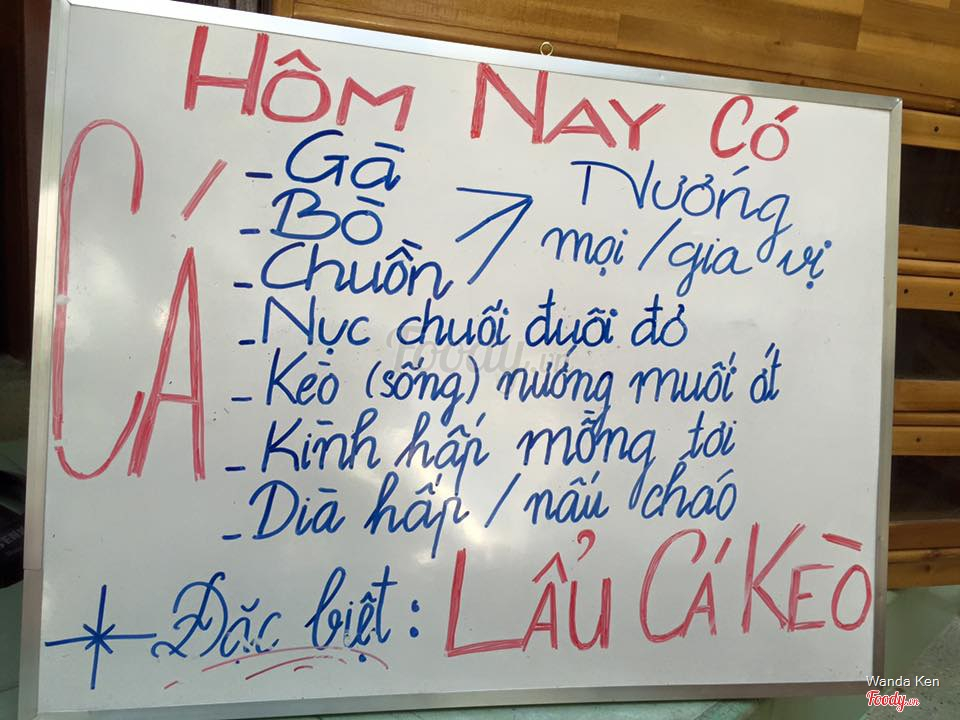 HÔM NAY CÓ
CÁ
- Gà
- Bò
- Chuồn
Nướng
mọi / gia vị
- Nục chuối đuôi đỏ
- Kèo (sống) nướng muối ớt
- Kình hấp mồng tơi
- Dìa hấp / nấu cháo
Đặc biệt: LẨU CÁ KÈO
Foody.vn
Wanda Ken
Foody.vn